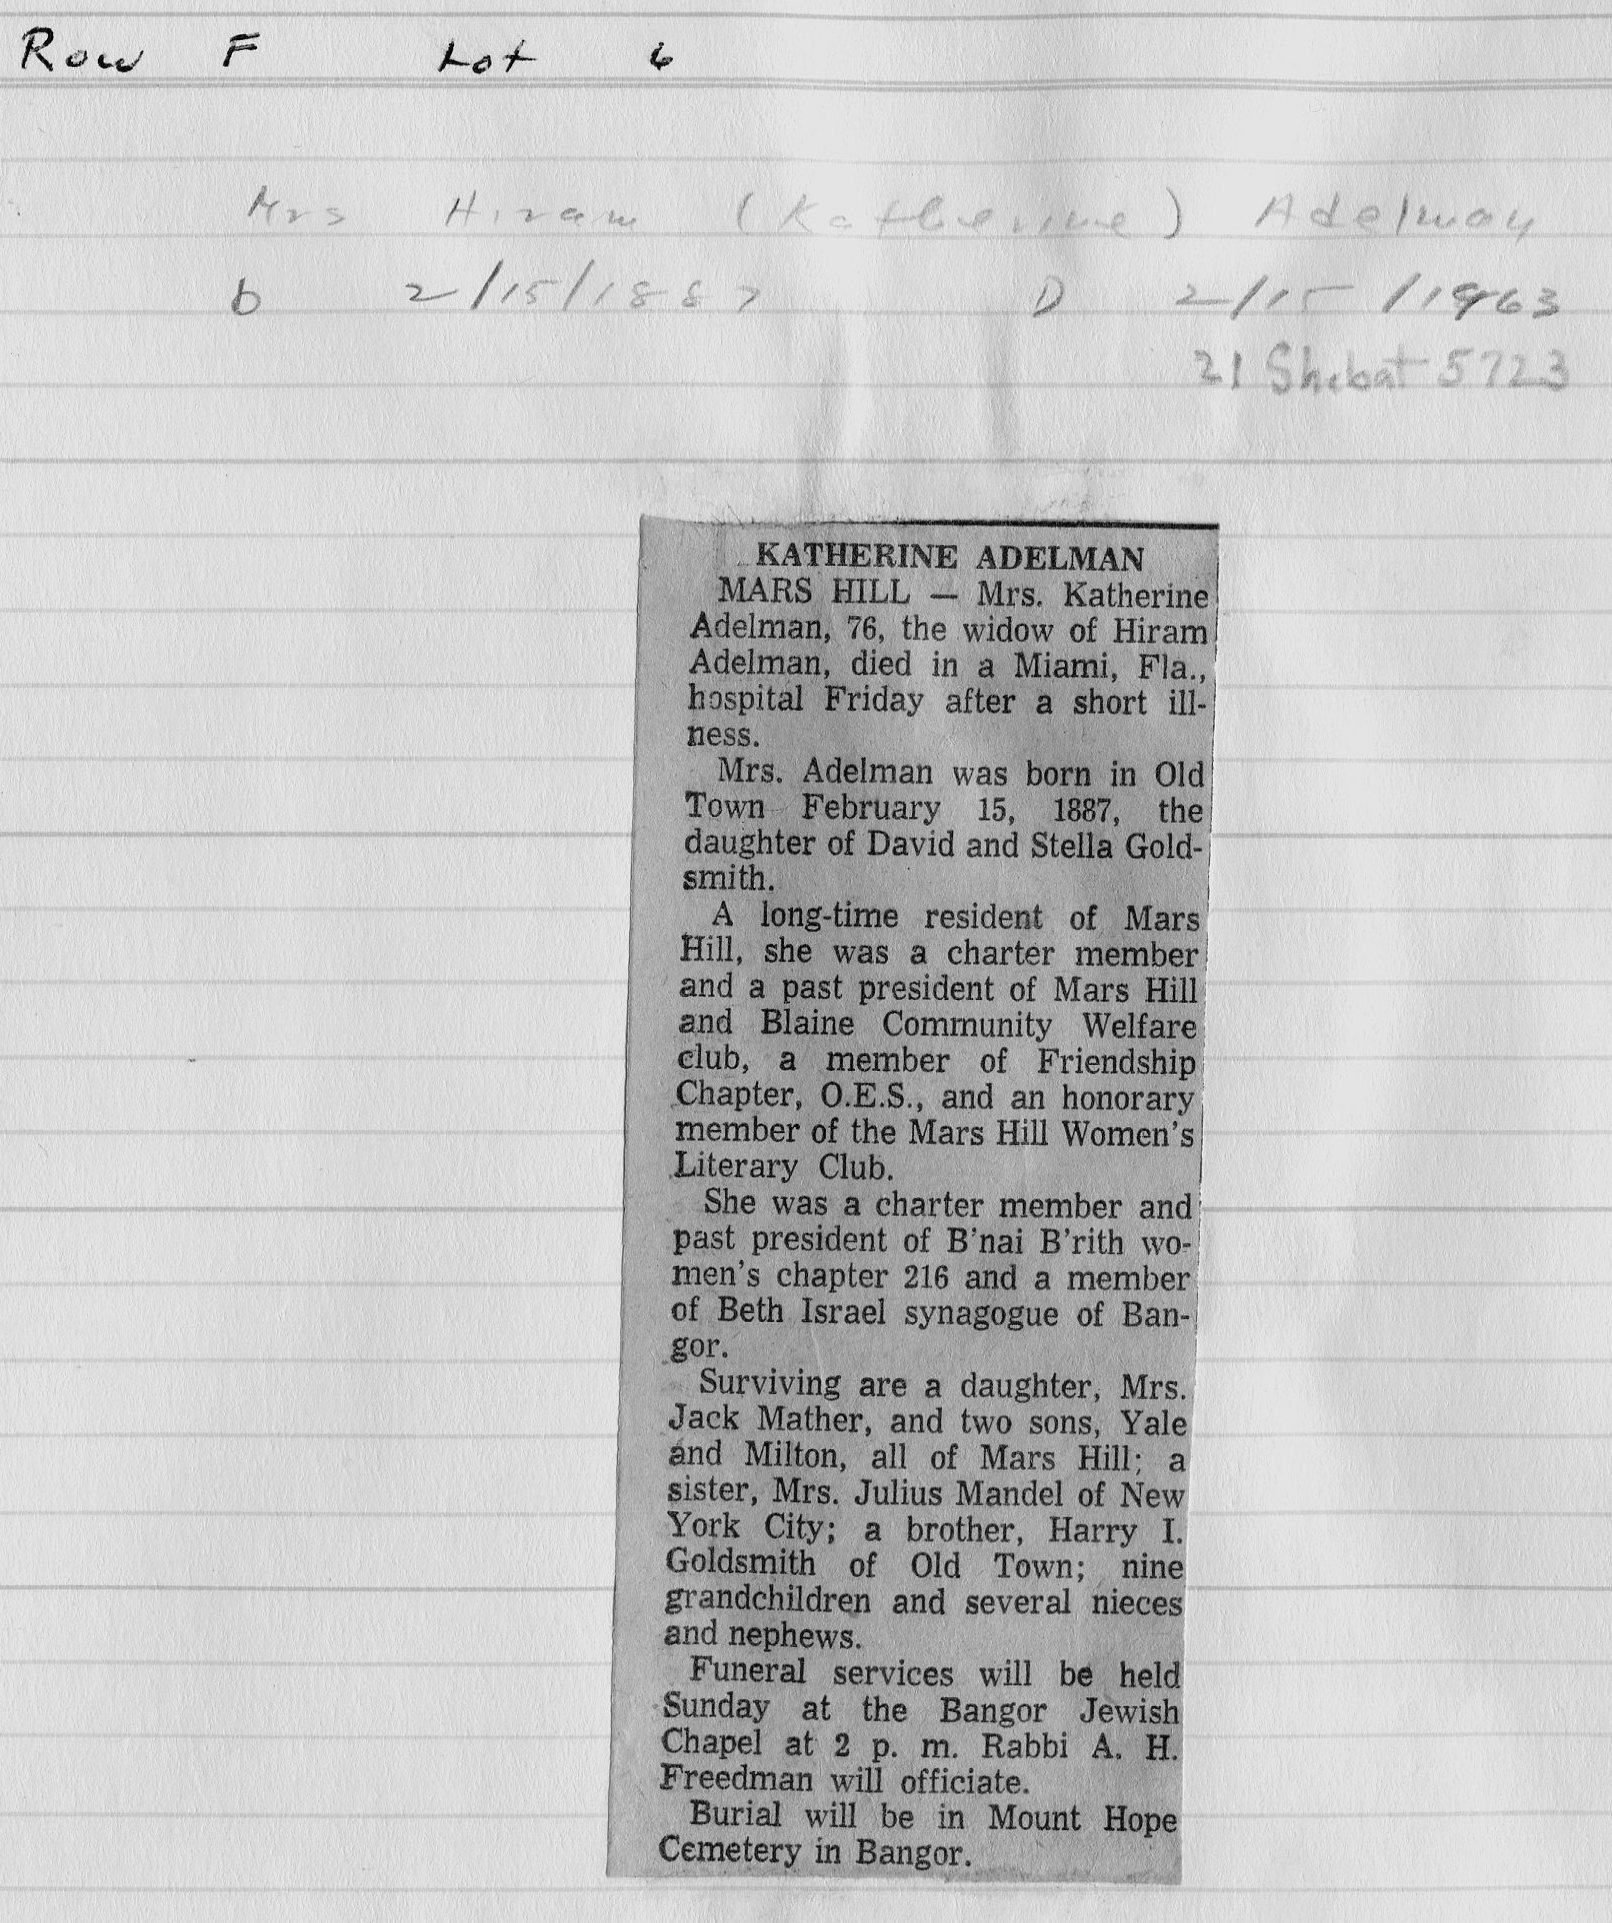 Row F Lot 6
Mrs Hiram (Katherine) Adelman
b 2/15/1887 D 2/15/1963
21 Shebat 5723
KATHERINE ADELMAN
MARS HILL — Mrs. Katherine
Adelman, 76, the widow of Hiram
Adelman, died in a Miami, Fla.,
hospital Friday after a short ill-
ness.
Mrs. Adelman was born in Old
Town February 15, 1887, the
daughter of David and Stella Gold-
smith.
A long-time resident of Mars
Hill, she was a charter member
and a past president of Mars Hill
and Blaine Community Welfare
club, a member of Friendship
Chapter, O.E.S., and an honorary
member of the Mars Hill Women's
Literary Club.
She was a charter member and
past president of B'nai B'rith wo-
men's chapter 216 and a member
of Beth Israel synagogue of Ban-
gor.
Surviving are a daughter, Mrs.
Jack Mather, and two sons, Yale
and Milton, all of Mars Hill; a
sister, Mrs. Julius Mandel of New
York City; a brother, Harry I.
Goldsmith of Old Town; nine
grandchildren and several nieces
and nephews.
Funeral services will be held
Sunday at the Bangor Jewish
Chapel at 2 p. m. Rabbi A. H.
Freedman will officiate.
Burial will be in Mount Hope
Cemetery in Bangor.